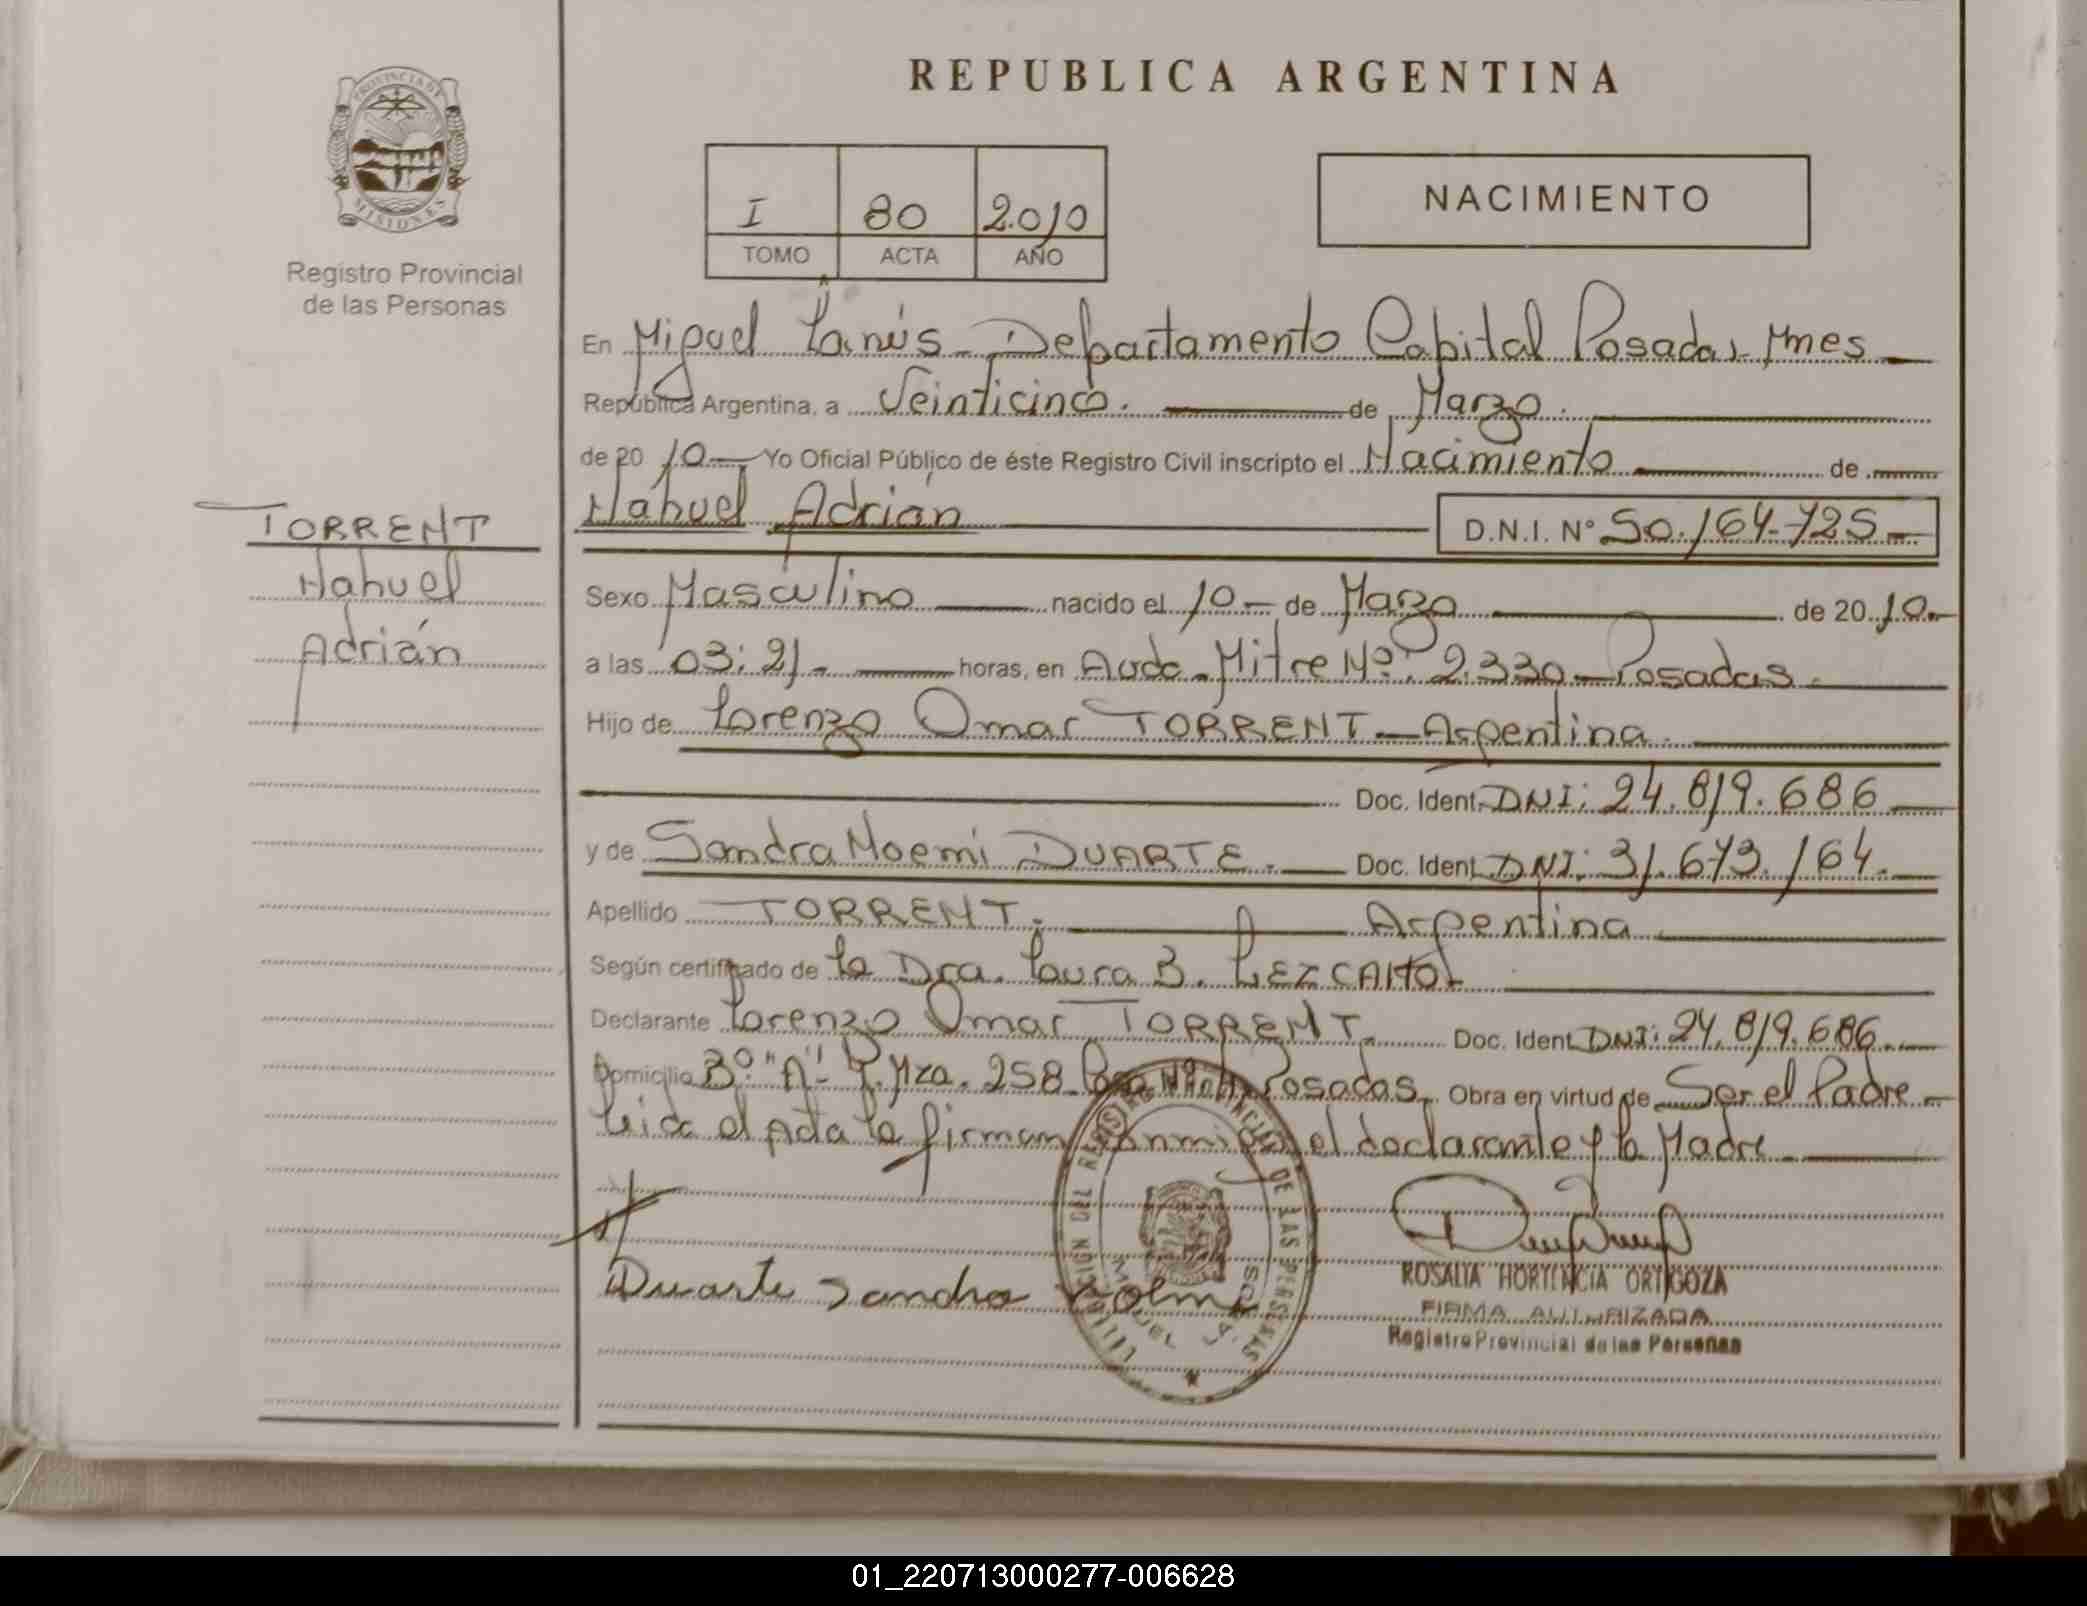 PROVINCIA DE
MISIONES
Registro Provincial
de las Personas
TORRENT
Nahuel
Adrián
REPUBLICA ARGENTINA
I 80 2.010
TOMO ACTA AÑO
NACIMIENTO
En Miguel Lanús - Departamento Capital Posadas - Mnes
República Argentina, a Veinticinco. de Marzo.
de 20 10 Yo Oficial Público de éste Registro Civil inscripto el Nacimiento de
Nahuel Adrián D.N.I. Nº 50.164.725
Sexo Masculino nacido el 10 - de Marzo de 20 10.
a las 03:21 - horas, en Avda. Mitre Nº: 2.330 - Posadas.
Hijo de Lorenzo Omar TORRENT - Argentina.
Doc. Ident. DNI: 24.819.686
y de Sandra Noemi DUARTE. Doc. Ident. DNI: 31.673.164.
Apellido TORRENT. Argentina
Según certificado de la Dra. Laura B. LEZCANO
Declarante Lorenzo Omar TORRENT. Doc. Ident. DNI: 24.819.686.
Domicilio Bº. "A" Mza. 258 Posadas. Obra en virtud de Ser el Padre -
leida el Acta la firman conmigo el declarante y la Madre
Duarte Sandra
DEL REGISTRO PROVINCIAL DE LAS PERSONAS
MIGUEL LANUS
ROSALIA HORTENCIA ORTIGOZA
FIRMA AUTORIZADA
Registro Provincial de las Personas
01_220713000277-006628